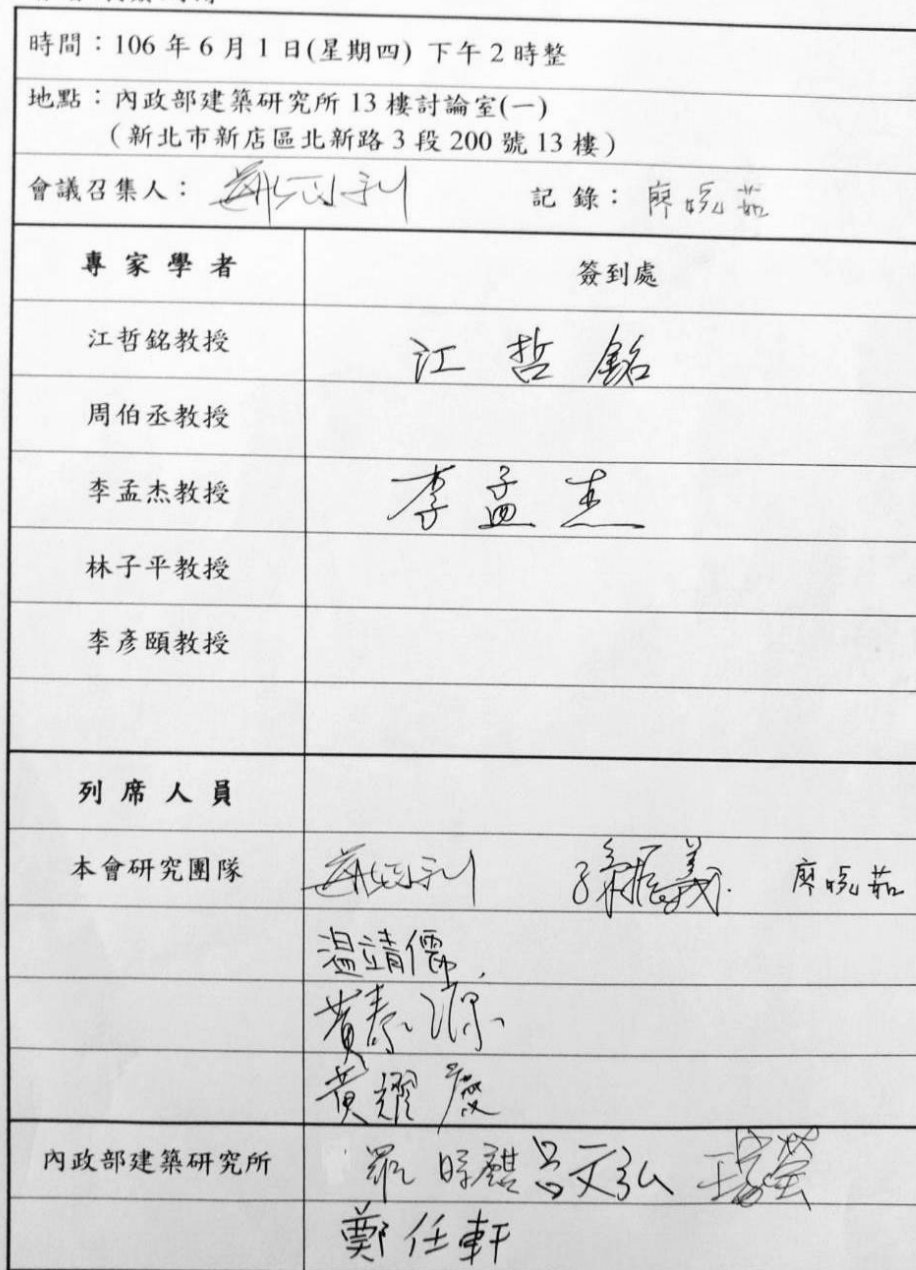 時間：106 年 6 月 1 日(星期四) 下午 2 時整
地點：內政部建築研究所 13 樓討論室(一)
（新北市新店區北新路 3 段 200 號 13 樓）
會議召集人： 記 錄：廖婉茹
專 家 學 者 簽到處
江哲銘教授 江 哲 銘
周伯丞教授
李孟杰教授 李 孟 杰
林子平教授
李彥頤教授
列 席 人 員
本會研究團隊 孫振義 廖婉茹
温靖儒
黃泰源
黃耀慶
內政部建築研究所 羅時麒 呂文弘
鄭任軒